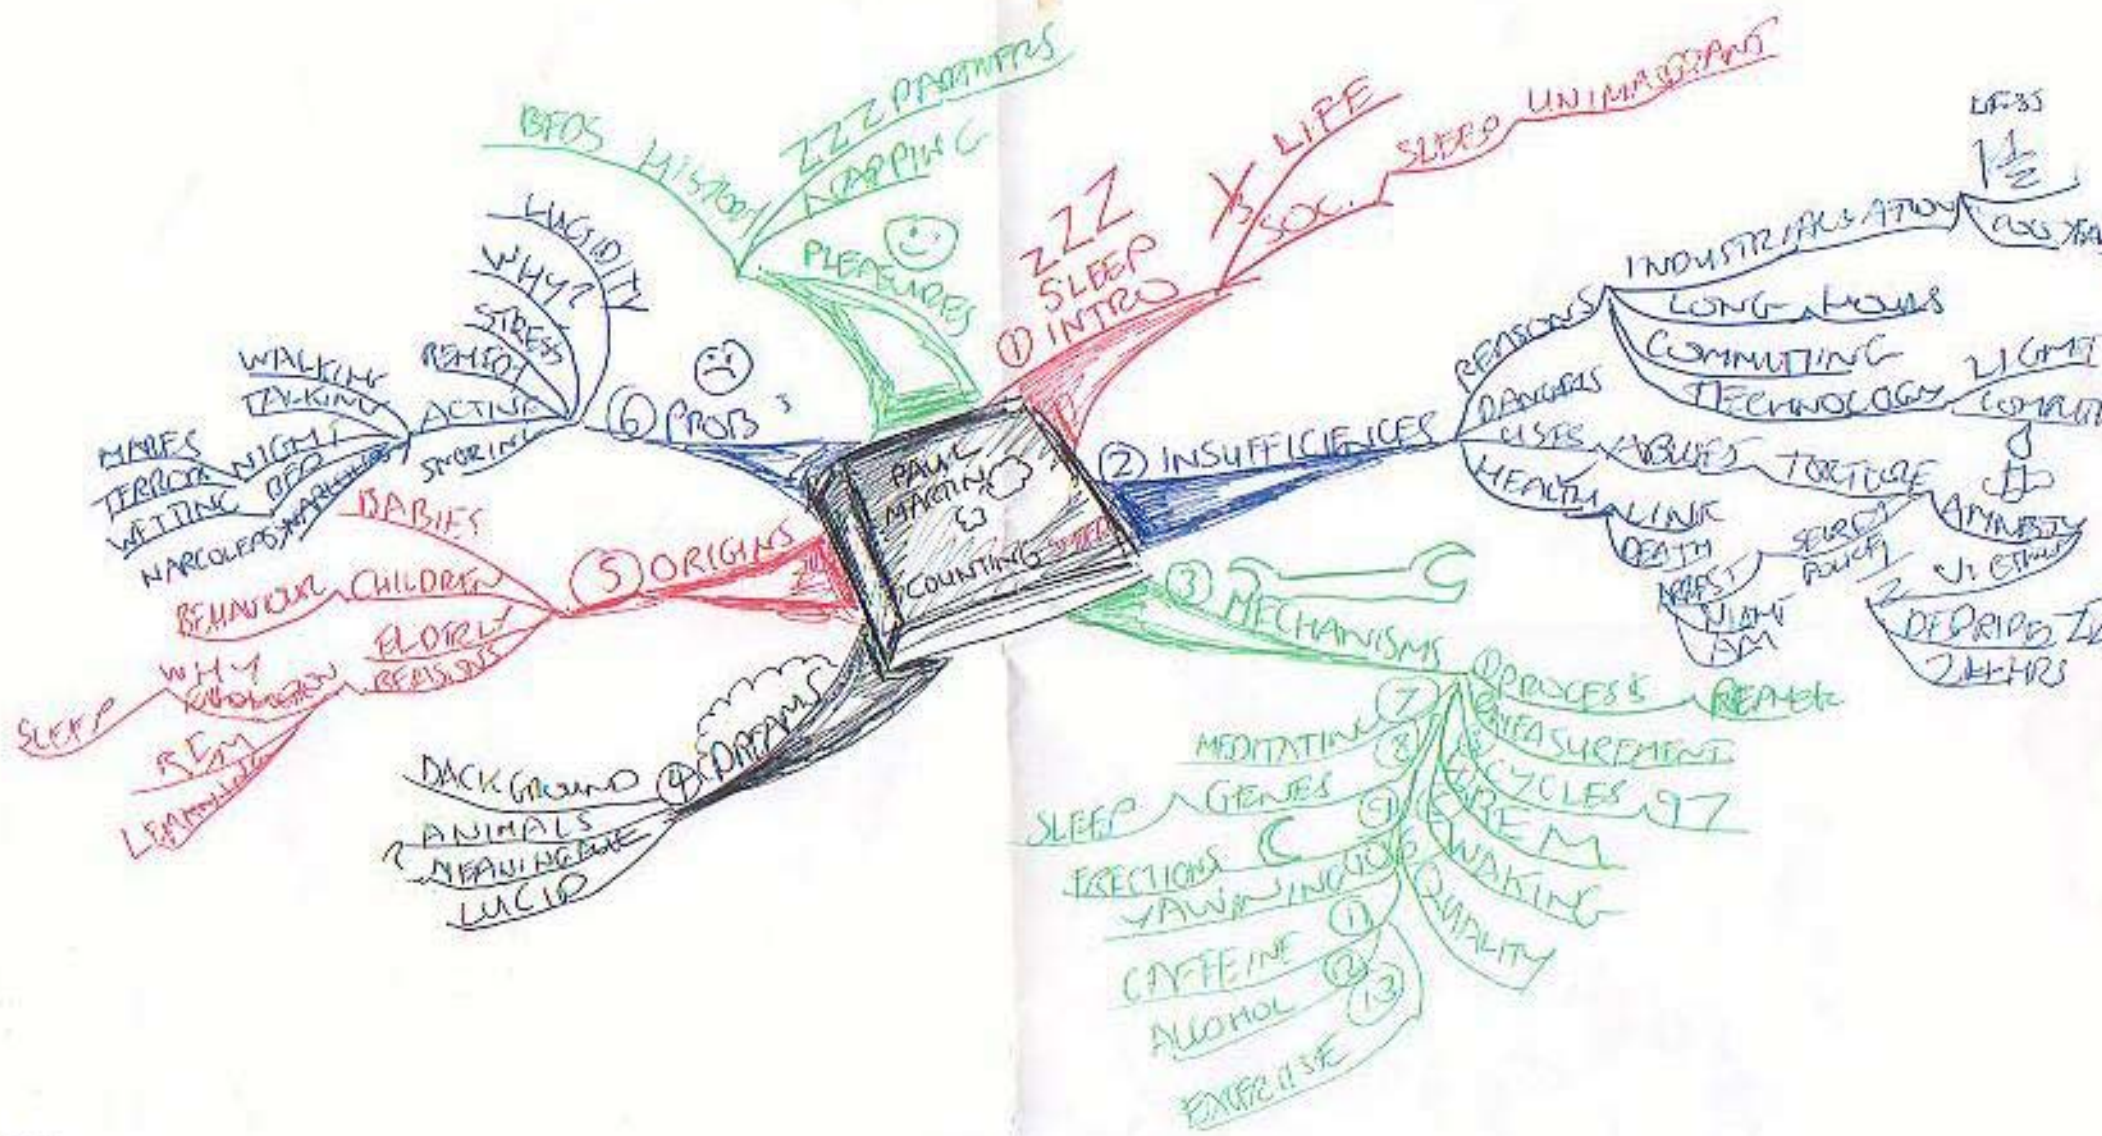 PAUL
MARTIN
COUNTING SHEEP
ZZZ
SLEEP
① INTRO
⅓ LIFE
SOC.
SLEEP
UNIMPORTANT
② INSUFFICIENCES
REASONS
INDUSTRIALISATION
LESS
1 1/2
LONG HOURS
COMMUTING
TECHNOLOGY
LIGHT
DANGERS
USES
ABUSES
TORTURE
AMNESTY
SECRET
POLICE
ARREST
NIGHT
AM
DEPRIVE
HEALTH
LINK
DEATH
③ MECHANISMS
① PROCESS
MEASUREMENT
CYCLES 97
REM
WAKING
QUALITY
⑦ MEDITATING
⑧ GENES
SLEEP
⑨ ERECTIONS
⑩ YAWNING
⑪ CAFFEINE
⑫ ALCOHOL
⑬ EXERCISE
④ DREAMS
BACKGROUND
ANIMALS
? MEANING
LUCID
⑤ ORIGINS
BABIES
CHILDREN
BEHAVIOUR
ELDERLY
REASONS
WHY
EVOLUTION
SLEEP
REM
LEARNING
⑥ PROB'S
LUCIDITY
WHY?
STRESS
ACTIVE
SNORING
WALKING
TALKING
NIGHT
MARES
TERROR
BED
WETTING
NARCOLEPSY
PLEASURES
NAPPING
ZZZ PARTNERS
HISTORY
BEDS